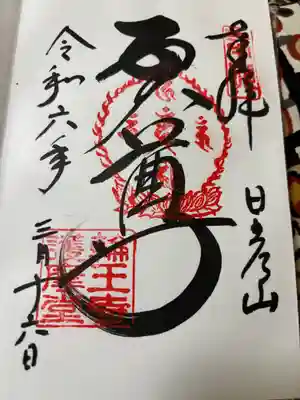 奉拝
日光山
五大尊
令和六年
三月十六日
輪王寺
護摩堂